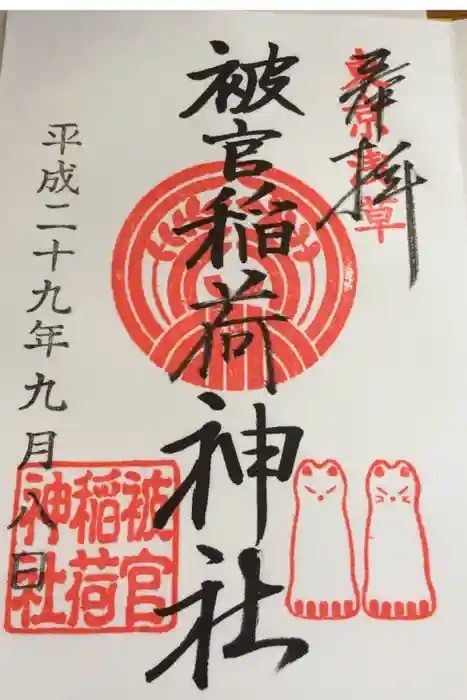 奉拝
東京浅草
被官稲荷神社
平成二十九年九月八日
被官
稲荷
神社